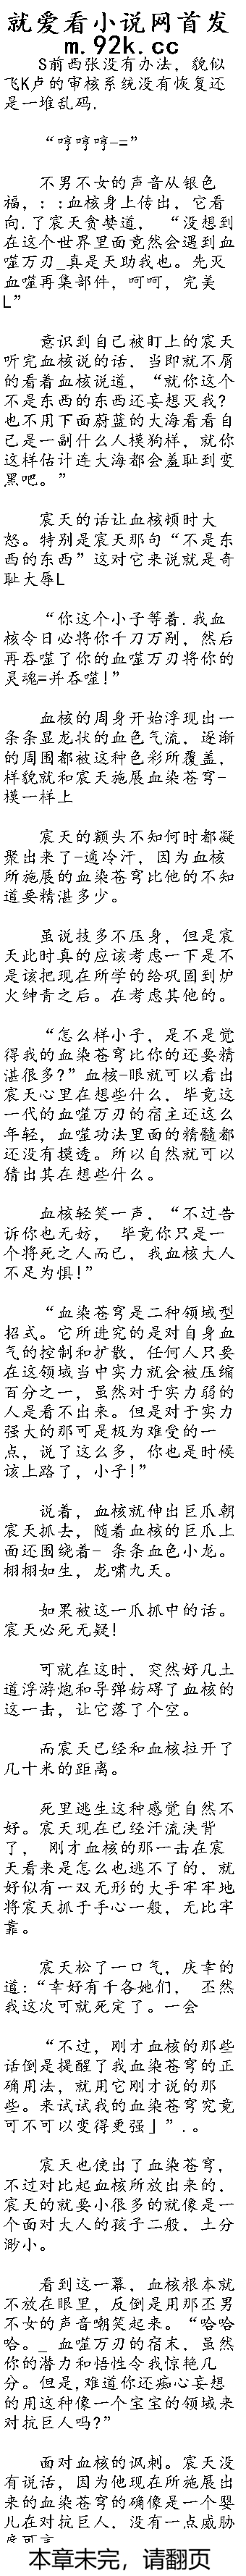 就爱看小说网首发
m.92k.cc
S前西张没有办法，貌似
飞K卢的审核系统没有恢复还
是一堆乱码.
“哼哼哼-=”
不男不女的声音从银色
福，：:血核身上传出，它看
向.了宸天贪婪道，“没想到
在这个世界里面竟然会遇到血
噬万刃_真是天助我也。先灭
血噬再集部件，呵呵，完美
L”
意识到自己被盯上的宸天
听完血核说的话，当即就不屑
的看着血核说道，“就你这个
不是东西的东西还妄想灭我?
也不用下面蔚蓝的大海看看自
己是一副什么人模狗样，就你
这样估计连大海都会羞耻到变
黑吧。”
宸天的话让血核顿时大
怒。特别是宸天那句“不是东
西的东西”这对它来说就是奇
耻大辱L
“你这个小子等着.我血
核令日必将你千刀万剐，然后
再吞噬了你的血噬万刃将你的
灵魂=并吞噬!”
血核的周身开始浮现出一
条条显龙状的血色气流，逐渐
的周围都被这种色彩所覆盖，
样貌就和宸天施展血染苍穹-
模一样上
宸天的额头不知何时都凝
聚出来了-滴冷汗，因为血核
所施展的血染苍穹比他的不知
道要精湛多少。
虽说技多不压身，但是宸
天此时真的应该考虑一下是不
是该把现在所学的给巩固到炉
火绅青之后。在考虑其他的。
“怎么样小子，是不是觉
得我的血染苍穹比你的还要精
湛很多?”血核-眼就可以看出
宸天心里在想些什么，毕竟这
一代的血噬万刃的宿主还这么
年轻，血噬功法里面的精髓都
还没有摸透。所以自然就可以
猜出其在想些什么。
血核轻笑一声，“不过告
诉你也无妨， 毕竟你只是一
个将死之人而已，我血核大人
不足为惧!”
“血染苍穹是二种领域型
招式。它所进究的是对自身血
气的控制和扩散，任何人只要
在这领域当中实力就会被压缩
百分之一，虽然对于实力弱的
人是看不出来。但是对于实力
强大的那可是极为难受的一
点，说了这么多，你也是时候
该上路了，小子!”
说着，血核就伸出巨爪朝
宸天抓去，随着血核的巨爪上
面还围绕着- 条条血色小龙。
栩栩如生，龙啸九天。
如果被这一爪抓中的话。
宸天必死无疑!
可就在这时，突然好几土
道浮游炮和导弹妨碍了血核的
这一击，让它落了个空。
而宸天已经和血核拉开了
几十米的距离。
死里逃生这种感觉自然不
好。宸天现在已经汗流浃背
了， 刚才血核的那一击在宸
天看来是怎么也逃不了的，就
好似有一双无形的大手牢牢地
将宸天抓于手心一般，无比牢
靠。
宸天松了一口气，庆幸的
道:“幸好有千各她们， 丕然
我这次可就死定了。一会
“不过，刚才血核的那些
话倒是提醒了我血染苍穹的正
确用法，就用它刚才说的那
些。来试试我的血染苍穹究竟
可不可以变得更强」”.。
宸天也使出了血染苍穹，
不过对比起血核所放出来的，
宸天的就要小很多的就像是一
个面对大人的孩子二般，土分
渺小。
看到这一幕，血核根本就
不放在眼里，反倒是用那丕男
不女的声音嘲笑起来。“哈哈
哈。_ 血噬万刃的宿末，虽然
你的潜力和悟性令我惊艳几
分。但是,难道你还痴心妄想
的用这种像一个宝宝的领域来
对抗巨人吗?”
面对血核的讽刺。宸天没
有说话，因为他现在所施展出
来的血染苍穹的确像是一个婴
儿在对抗巨人，没有一点威胁
度可言
本章未完，请翻页